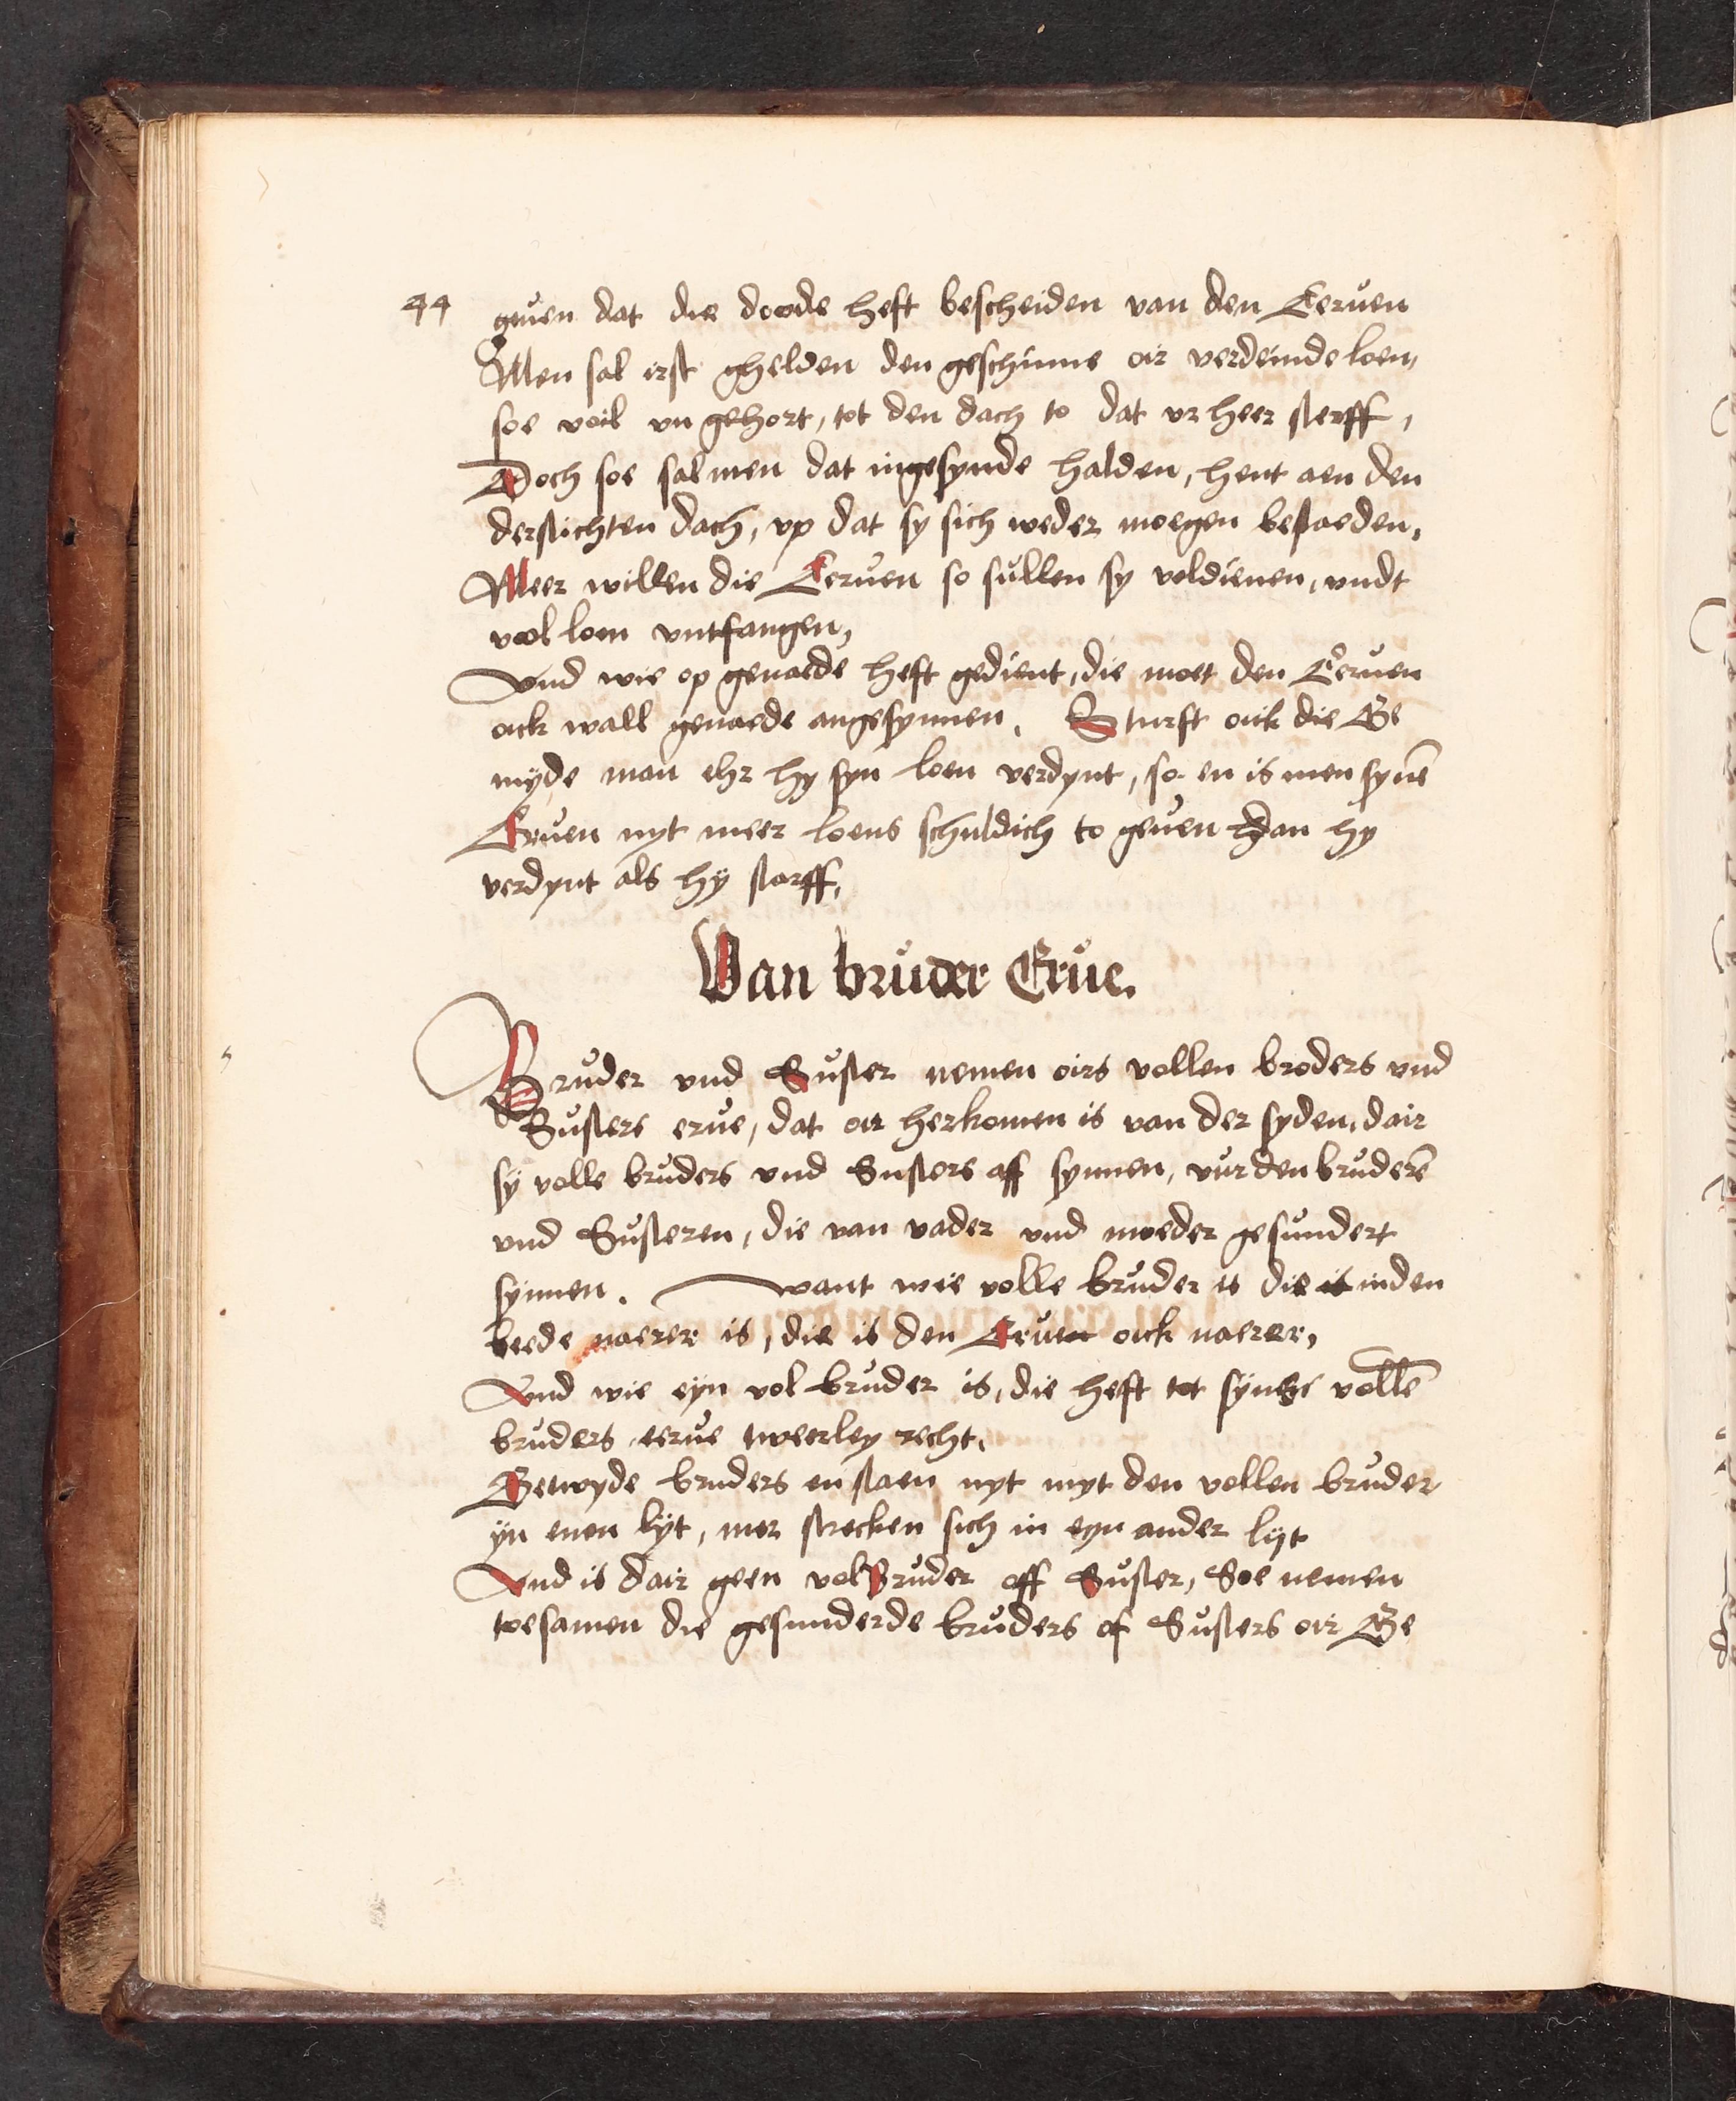 44 geuen dat die doode heft bescheiden van den Eeruen
Men sal irst ghelden den geschinne oir verdeinde loen,
soe voil vn gehort, tot den dach to dat vr heer sterff,
Doch soe sal men dat ingesynde halden, hent aen den
derstichten dach, vp dat sy sich weder moegen bestaeden,
Meer willen die Eeruen so sůllen sy voldienen, vndt
vol loen vntfangen,
Vnd wie op genaede heft gedient, die moet den Eeruen
oick wall genaede angesynnen. Sturft oick die Ge
myde man ehr hy syn loen verdynt, so en is men synē
Eruen nyt meer loens schuldich to geuen Dan hy
verdynt als hÿ starff,
Van brůder Erůe.
Brůder vnd Sůster nemen oirs vollen broders vnd
Sůsters erůe, dat oir herkomen is van der syden, dair
sÿ volle brůders vnd Susters aff synnen, vůr den brůderē
vnd Sůsteren, die van vader vnd moeder gesůndert
synnen. want wie volle brůder is die is inden
beede naerer is, die is den Eruen oick naerer,
Vnd wie eÿn vol brůder is, die heft tot sÿns vollē
brůders eerůe tweerley recht.
Getwyde bruders en staen nyt myt den vollen brůder
ÿn enen lÿt, mer strecken sich in eyn ander lÿt
Vnd is dair geen vol Brůder off Sůster, Soe nemen
toesamen die gesunderde brůders of Sůsters oir Ge